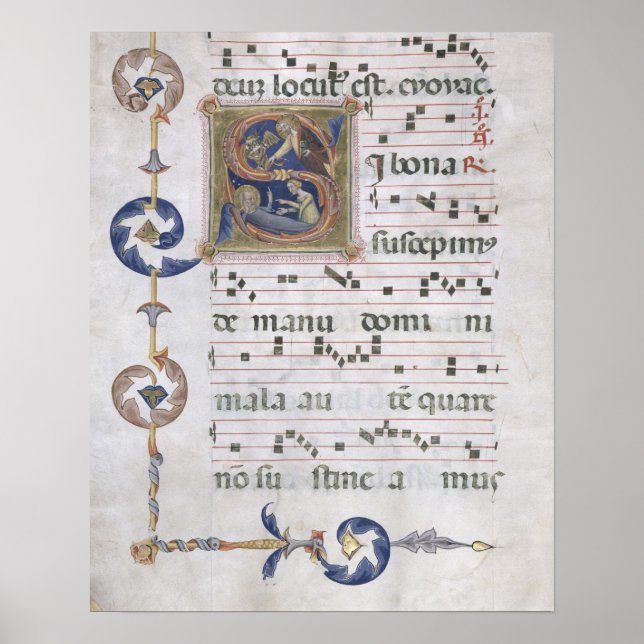 deuz locut᷒ est. evovae.
S I bona R.
suscepimꝰ
de manu domi ni
mala au tē quare
nō su stine a mus